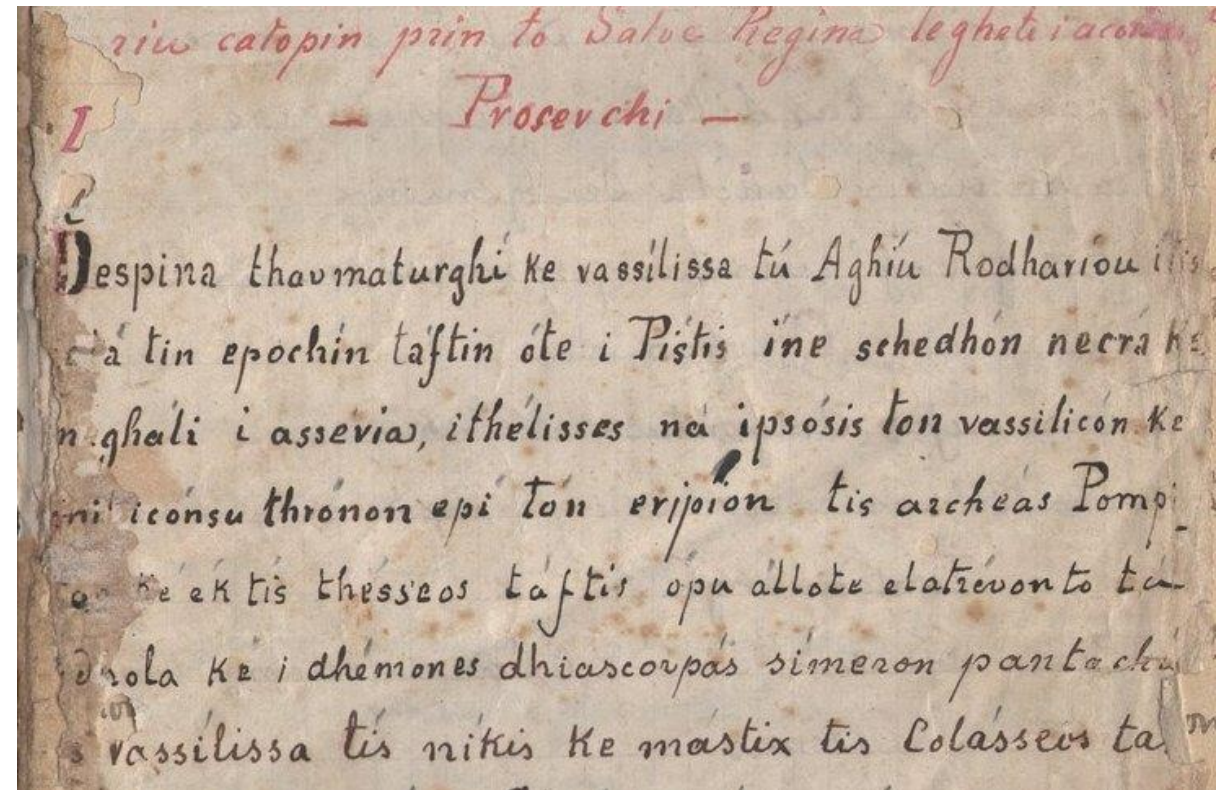 riu catopin prin to Salve Regina leghete i acon
— Prosevchi —
I
Despina thavmaturghí ke vassílissa tú Aghíu Rodharíou
tin epochín táftin óte i Pístis íne schedhón necrá ke
ghali i assévia, ithélisses ná ipsósis ton vassilicón ke
iconsu thrónon epí tón eripíon tis archeás Pompi_
ke ék tis thésseos táftis ópu állote elatrévonto tá
dhola ké i dhémones dhiascorpás símeron pantachú
vassílissa tís níkis ke mástix tis Colásseos ta